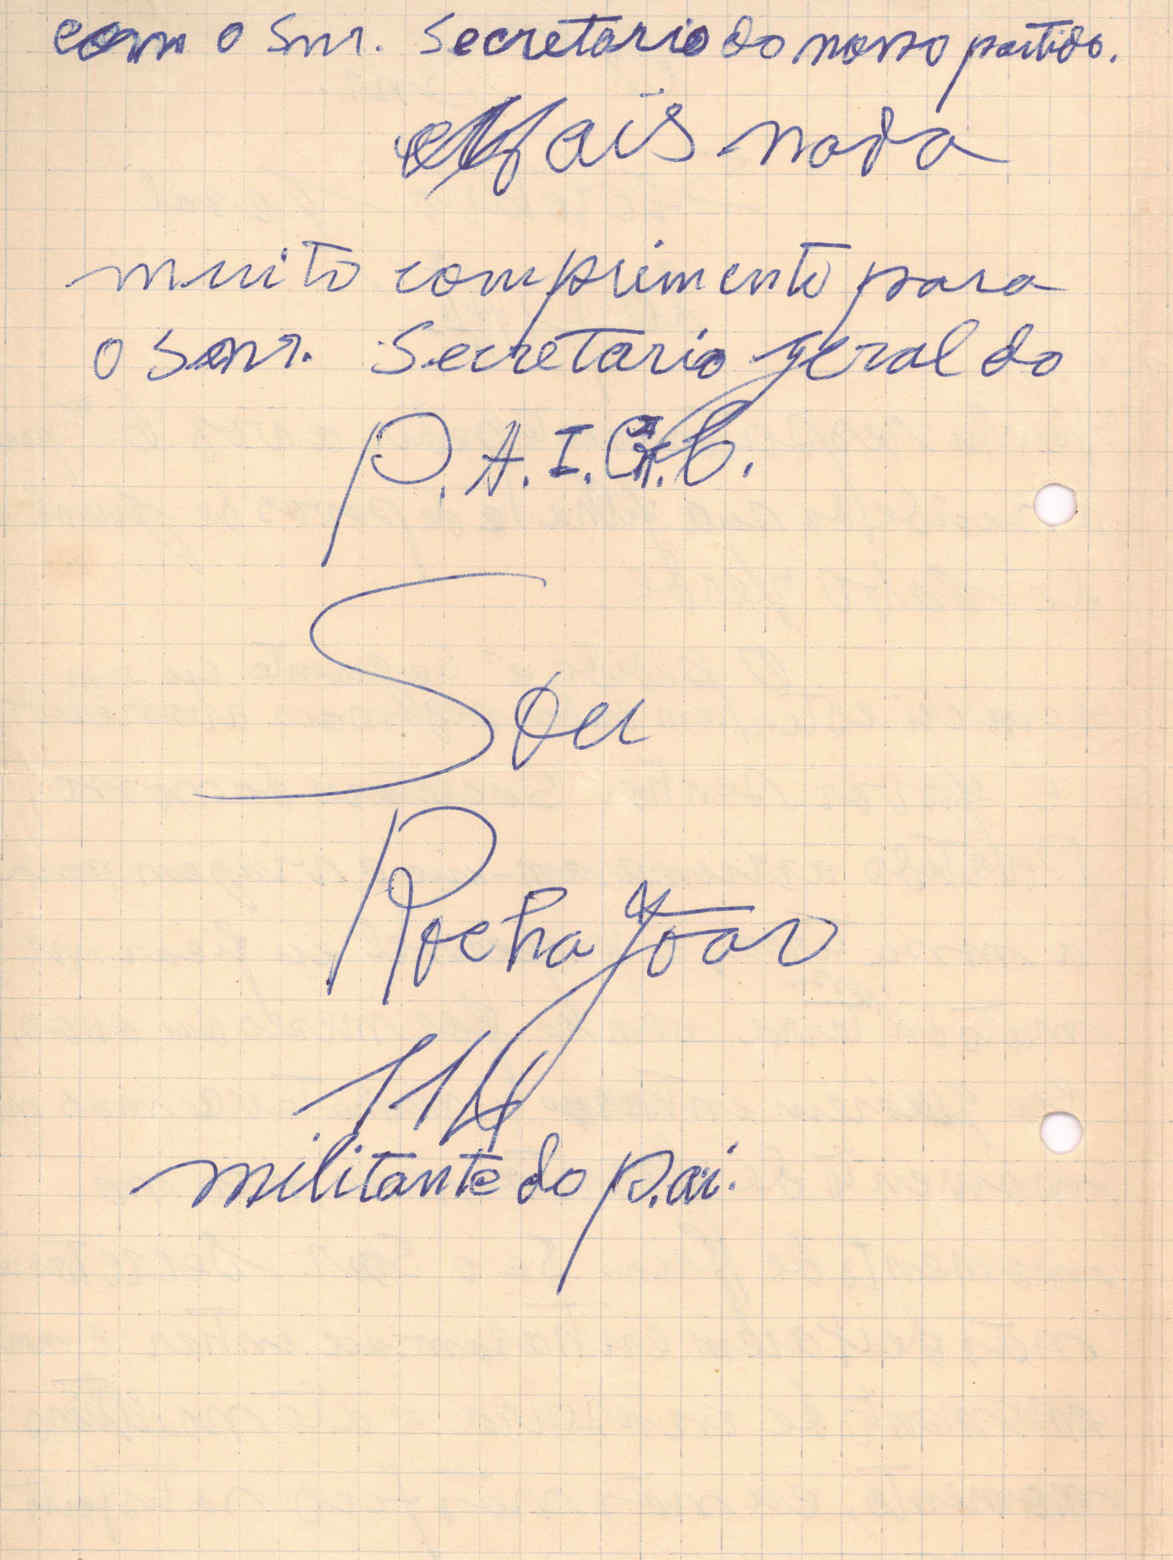 com o Snr. Secretario do nosso partido.
Mais nada
muito comprimento para
o Snr. Secretario geral do
P.A.I.G.C.
Sou
Rocha João
114
militante do p.ai.